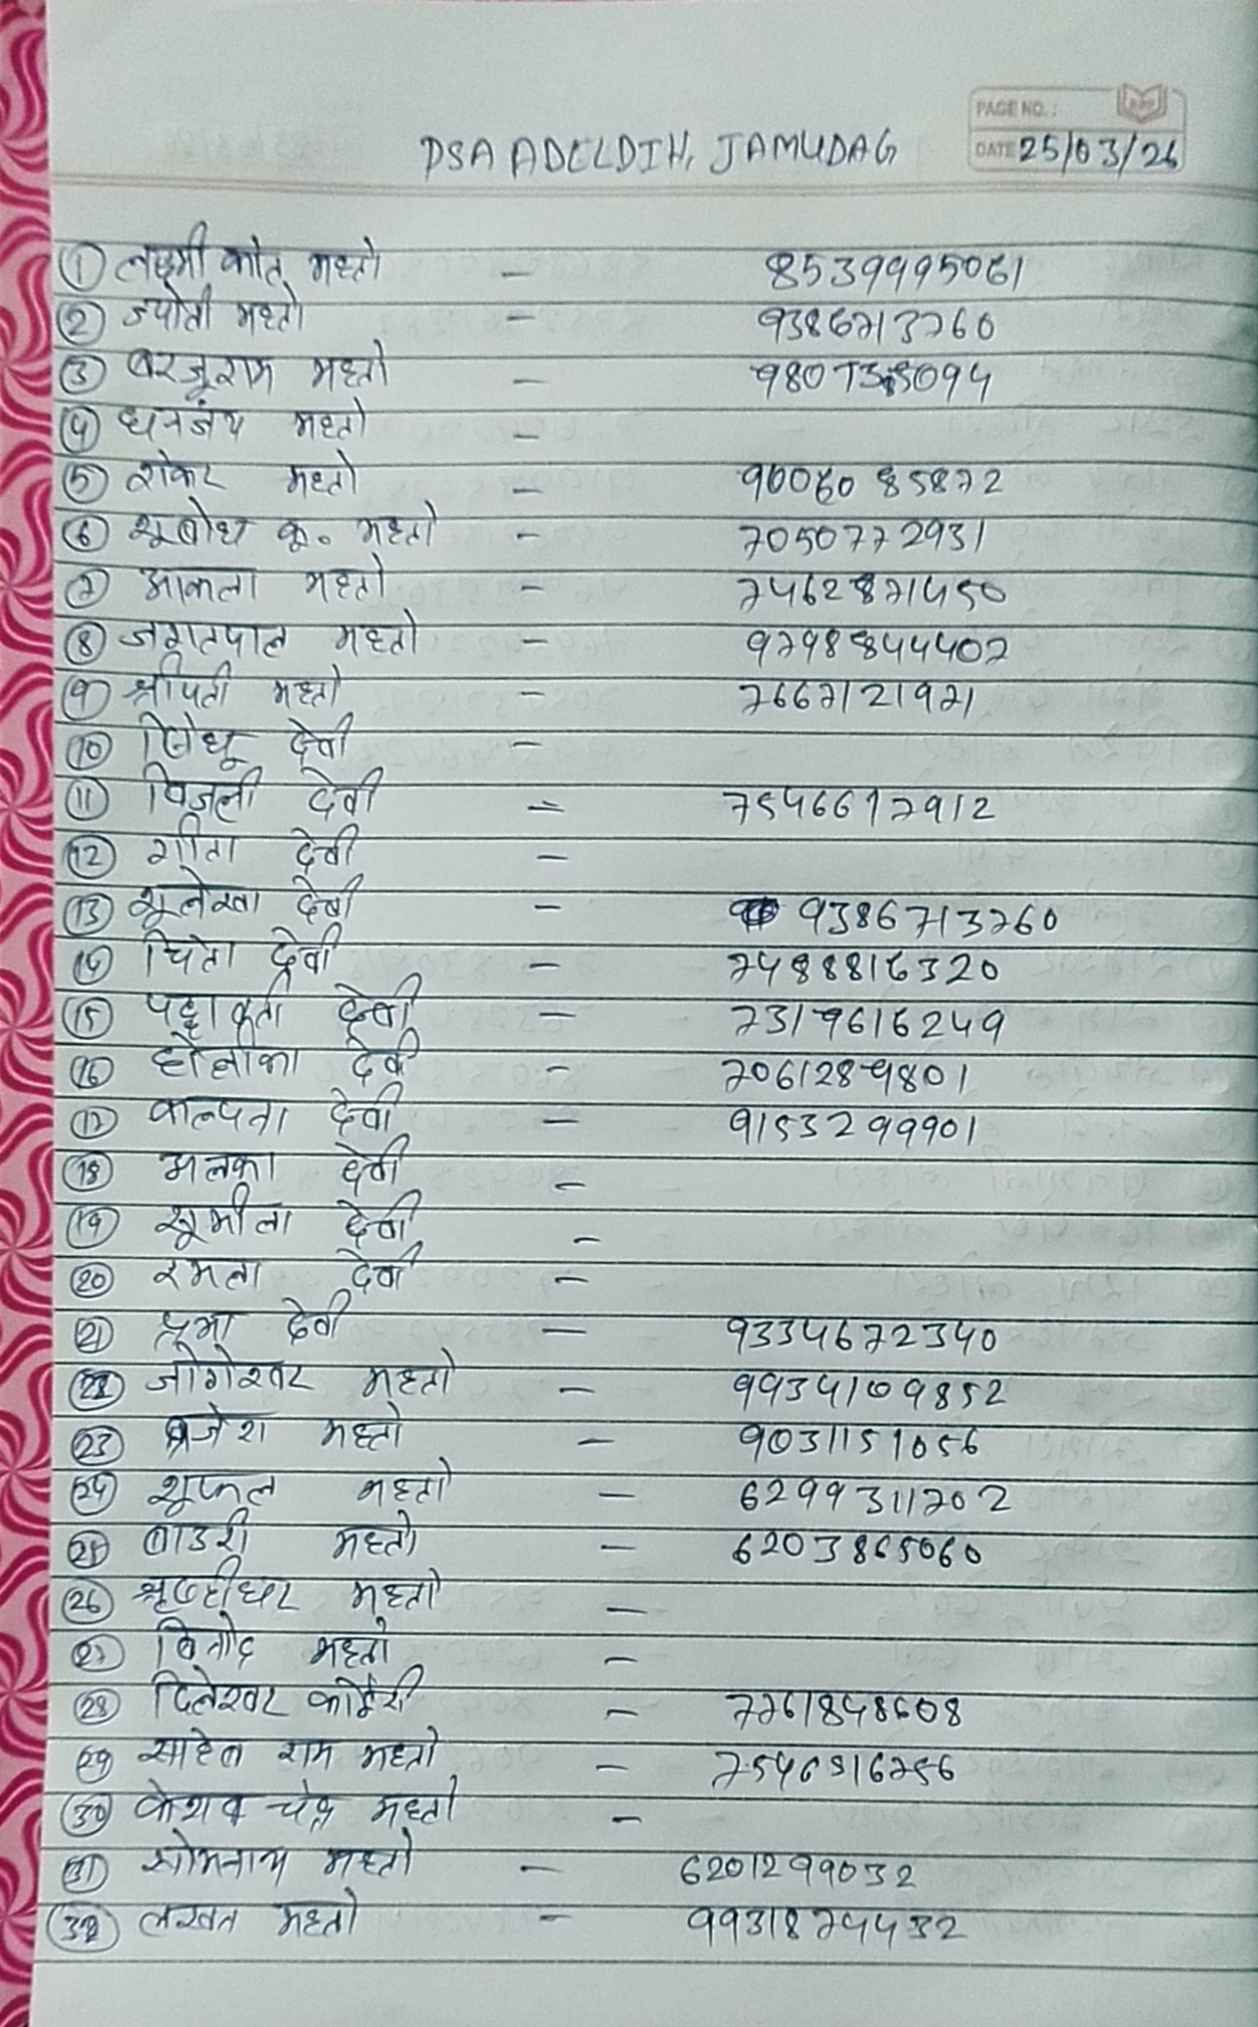 PAGE NO.:
DATE 25/03/26
PSA ADELDIH, JAMUDAG
① लक्ष्मी कांत महतो - 8539995061
② ज्योती महतो - 9386713760
③ बरजुराम महतो - 980
④ धनजंय महतो -
⑤ शंकर महतो - 90060 85872
⑥ शूबोध कू० महतो - 7050772931
⑦ आकला महतो - 7462871450
⑧ जगतपाल महतो - 9798844407
⑨ श्रीपती महतो - 7667121971
⑩ देवी -
⑪ विजली देवी = 7546617912
⑫ गीता देवी -
⑬ शूलेखा देवी - 9386713760
⑭ चिंता देवी - 7488816320
⑮ देवी - 7319616249
⑯ देवी - 7061289801
⑰ कल्पना देवी - 9153299901
⑱ अलका देवी -
⑲ शूमीला देवी -
⑳ रमला देवी -
㉑ देवी - 9334672340
㉒ जोगेश्वर महतो - 9934109852
㉓ ब्रजेश महतो - 9031151056
㉔ शूफल महतो - 6299311702
㉕ बाउरी महतो - 6203865060
㉖ महतो -
㉗ बिनोद महतो -
㉘ दिलेश्वर कोईरी - 7761848608
㉙ साहेब राम महतो - 7546816756
㉚ केशव चंद्र महतो -
㉛ सोमनाथ महतो - 6201299032
㉜ लखन महतो - 9931874432